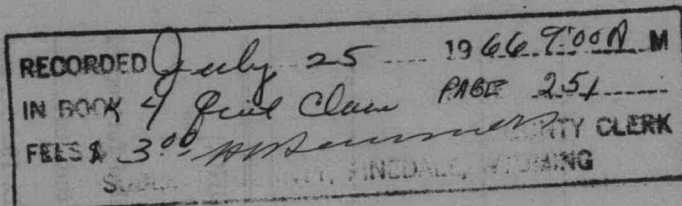 RECORDED July 25 1966 9:00 A M
IN BOOK 4 Quit Claim PAGE 251
FEES $ 3.00 COUNTY CLERK
SUBLETTE COUNTY, PINEDALE, WYOMING